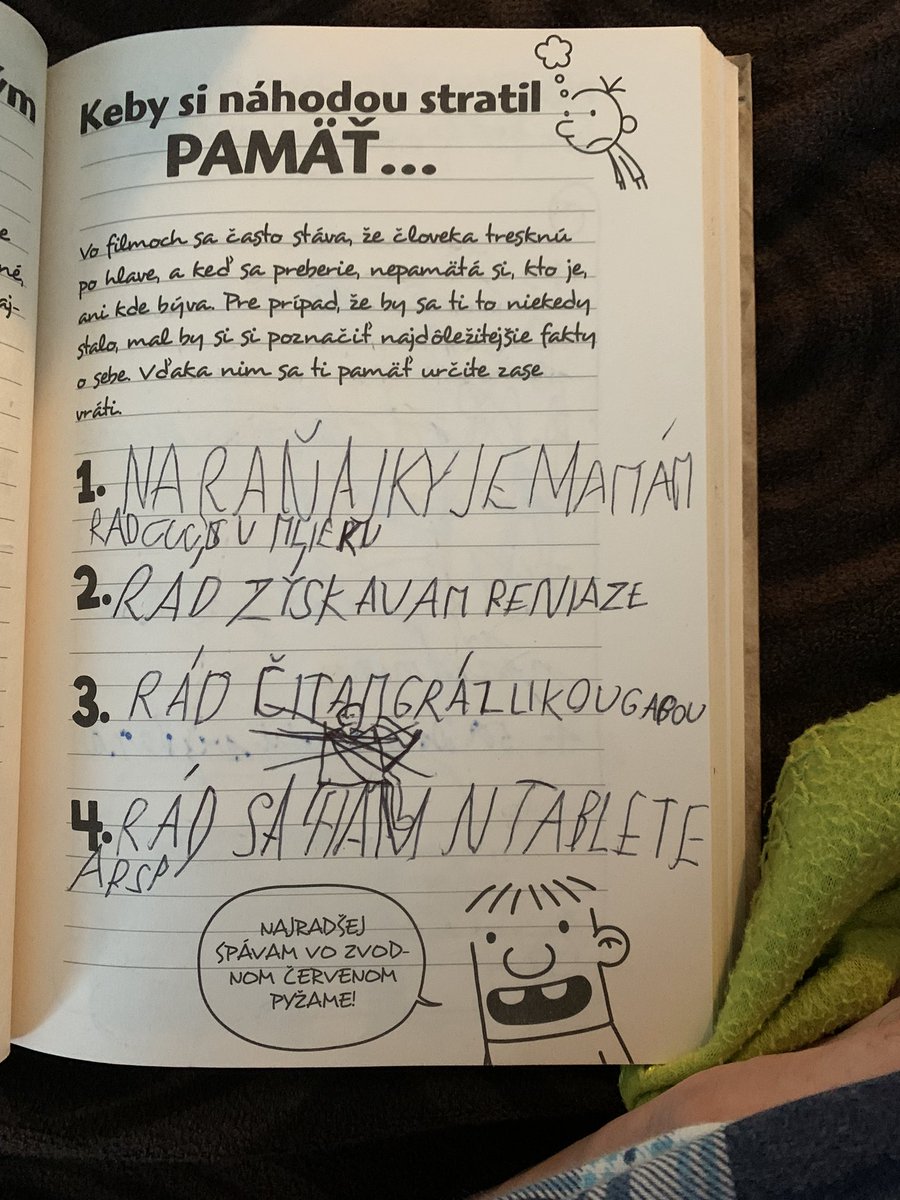 ým
Keby si náhodou stratil
PAMÄŤ...
e
né,
aj-
Vo filmoch sa často stáva, že človeka tresknú
po hlave, a keď sa preberie, nepamätá si, kto je,
ani kde býva. Pre prípad, že by sa ti to niekedy
stalo, mal by si si poznačiť najdôležitejšie fakty
o sebe. Vďaka nim sa ti pamäť určite zase
vráti.
1. NA RAŇAJKY JE MAMÁM
RAD V MLIEKU
2. RAD ZÍSKAVAM PENIAZE
3. RÁD ČITAM GRÁZLIKOU GABOU
4. RÁD SA HAM N TABLETE
NAJRADŠEJ
SPÁVAM VO ZVOD-
NOM ČERVENOM
PYŽAME!